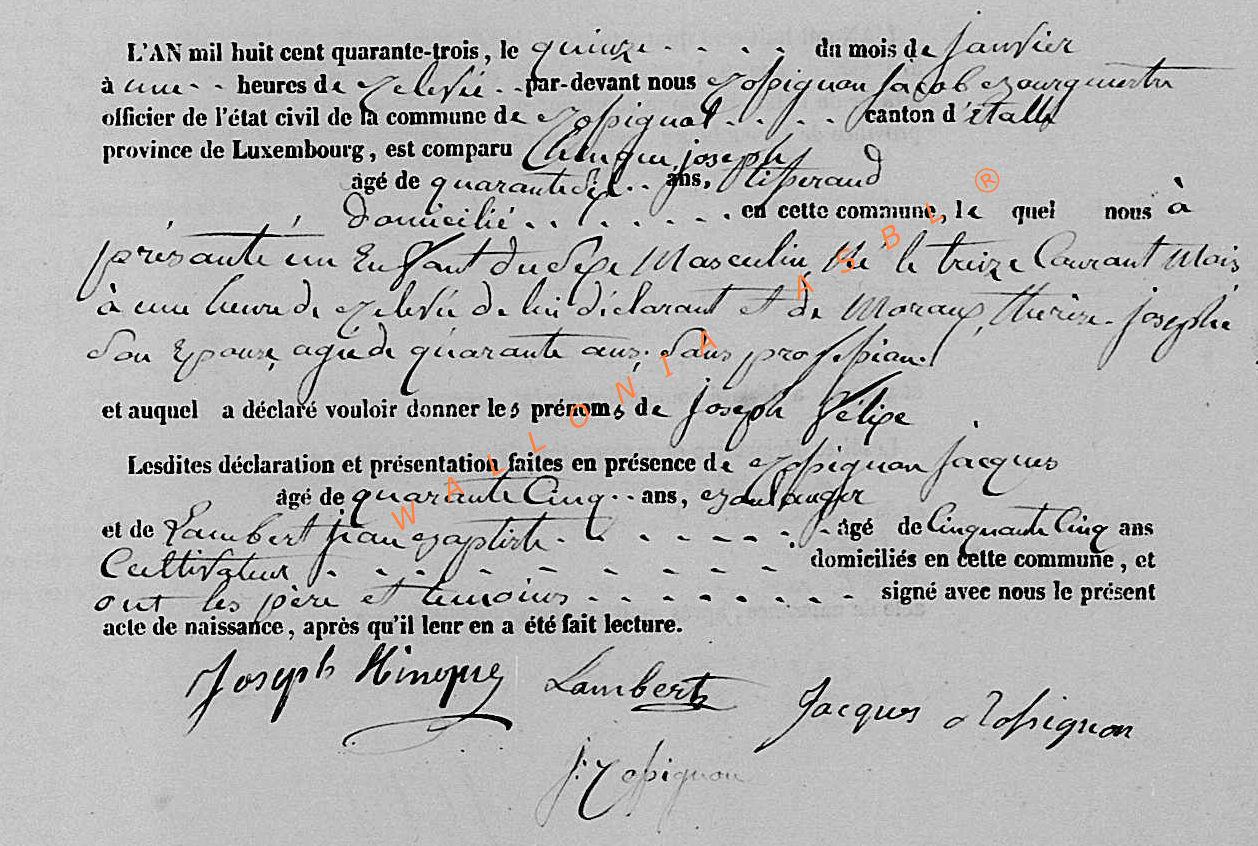 L'AN mil huit cent quarante-trois, le quinze - - - - du mois de janvier
à une - - heures de relevée - - par-devant nous Rossignon Jacob bourgmestre
officier de l'état civil de la commune de Rossignol - - - - canton d'étalle
province de Luxembourg, est comparu joseph
âgé de quarante six - - ans, tisserand
domicilié - - - - - - - en cette commune, le quel nous à
présanté un Enfant du sexe Masculin, Né le treize Courant Mois
à une heure de relevée de lui déclarant et de Moraux thérèse josephe
son Epouse, agée de quarante ans, sans profession
et auquel a déclaré vouloir donner les prénoms de joseph félixe
Lesdites déclaration et présentation faites en présence de Rossignon jacques
âgé de quarante Cinq - - ans, boulanger
et de Lambert jean baptiste - - - - - - - âgé de Cinquante Cinq ans
Cultivateur - - - - - - - - - domiciliés en cette commune, et
ont les père et temoins - - - - - - - - signé avec nous le présent
acte de naissance, après qu'il leur en a été fait lecture.
Joseph Lambert Jacques Rossignon
J. Rossignon
WALLONIA ASBL ®